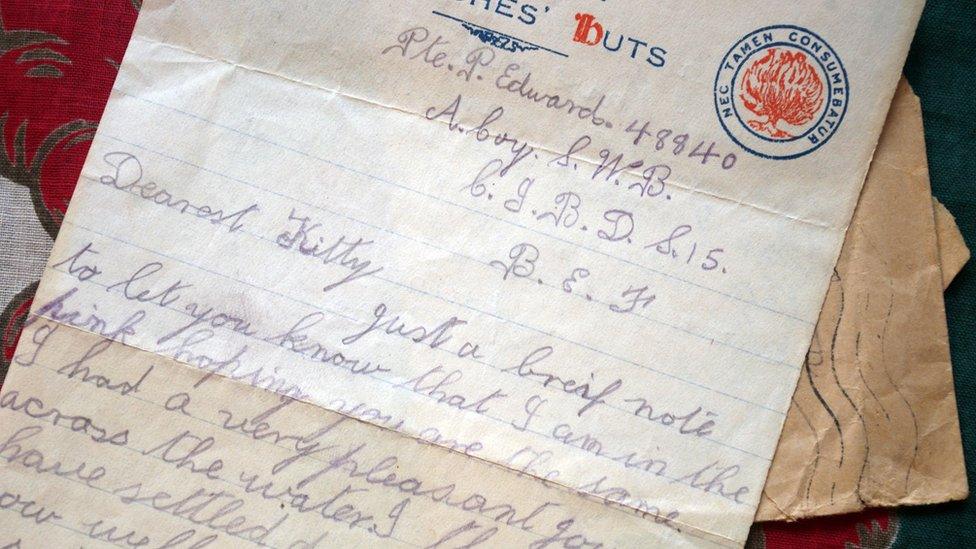 CHES' HUTS
NEC TAMEN CONSUMEBATUR
Pte. P. Edward. 48840
A. boy. S. W. B.
C. J. B. D. S. 15.
B. E. F
Dearest Kitty
Just a breif note
to let you know that I am in the
pink hoping you are the same.
I had a very pleasant
across the water. I
have settled
ow well